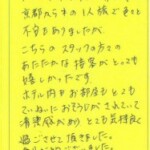 京都から1人旅できて
不安もありましたが、
こちらのスタッフの方の
あたたかな接客がとっても
嬉しかったです。
ホテル内やお部屋もとても
ていねいにおそうじがされていて
清潔感があり とても気持良く
過ごさせて頂きました。
ありがとうございました。